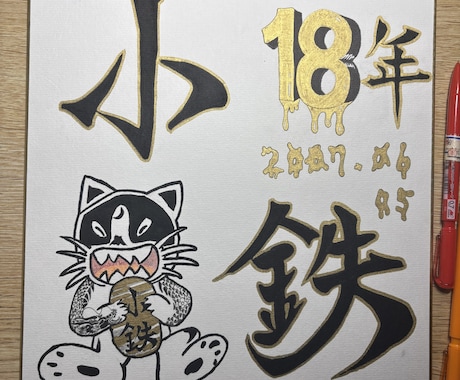 小鉄
18年
2007.06
05
小鉄